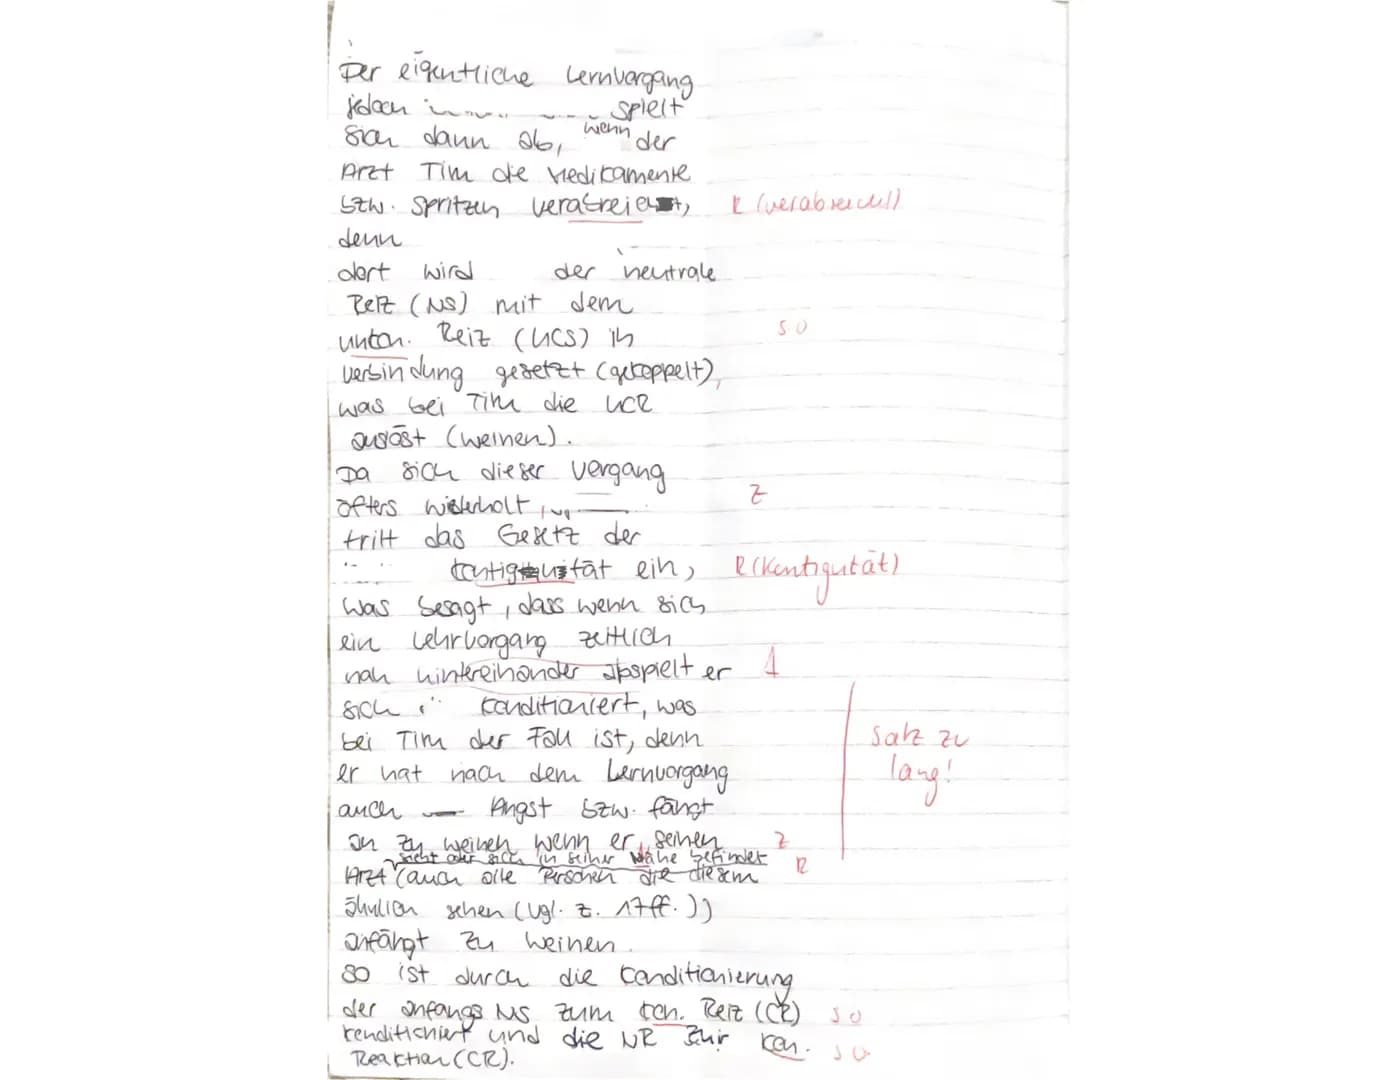 Der eigentliche Lernvorgang
jedoch spielt
sich dann ab, wenn der
Arzt Tim die Medikamente
bzw. Spritzen verabreicht, R (verabreicht)
denn
dort wird der neutrale
Reiz (NS) mit dem
unkon. Reiz (UCS) in so
verbindung gesetzt (gekoppelt),
was bei Tim die UCR
auslöst (weinen).
Da sich dieser Vorgang
öfters wiederholt, Z
tritt das Gesetz der
kontiguität ein, R (Kontigutät)
was besagt, dass wenn sich
ein Lehrvorgang zeitlich
nah hintereinander abspielt er 1
sich konditioniert, was
bei Tim der Fall ist, denn Satz zu
er hat nach dem Lernvorgang lang!
auch Angst bzw. fängt
an zu weinen wenn er seinen Z
sieht oder sich in seiner Nähe befindet R
Arzt (auch alle Personen die diesem
ähnlich sehen (vgl. Z. 17ff.))
anfängt zu weinen.
So ist durch die Konditionierung
der anfangs NS zum kon. Reiz (CR) so
konditioniert und die NR zur kon. so
Reaktion (CR).